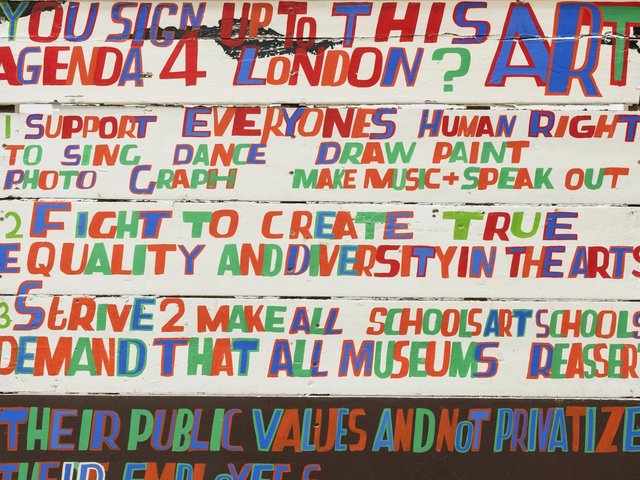 YOU SIGN UP TO THIS ART
AGENDA 4 LONDON?
1 SUPPORT EVERYONES HUMAN RIGHT
TO SING DANCE DRAW PAINT
PHOTO GRAPH MAKE MUSIC+SPEAK OUT
2 FIGHT TO CREATE TRUE
EQUALITY AND DIVERSITY IN THE ARTS
3 StRIVE 2 MAKE ALL SCHOOLS ART SCHOOLS
DEMAND THAT ALL MUSEUMS REASSER
THEIR PUBLIC VALUES AND NOT PRIVATIZE
THEIR EMPLOYEES